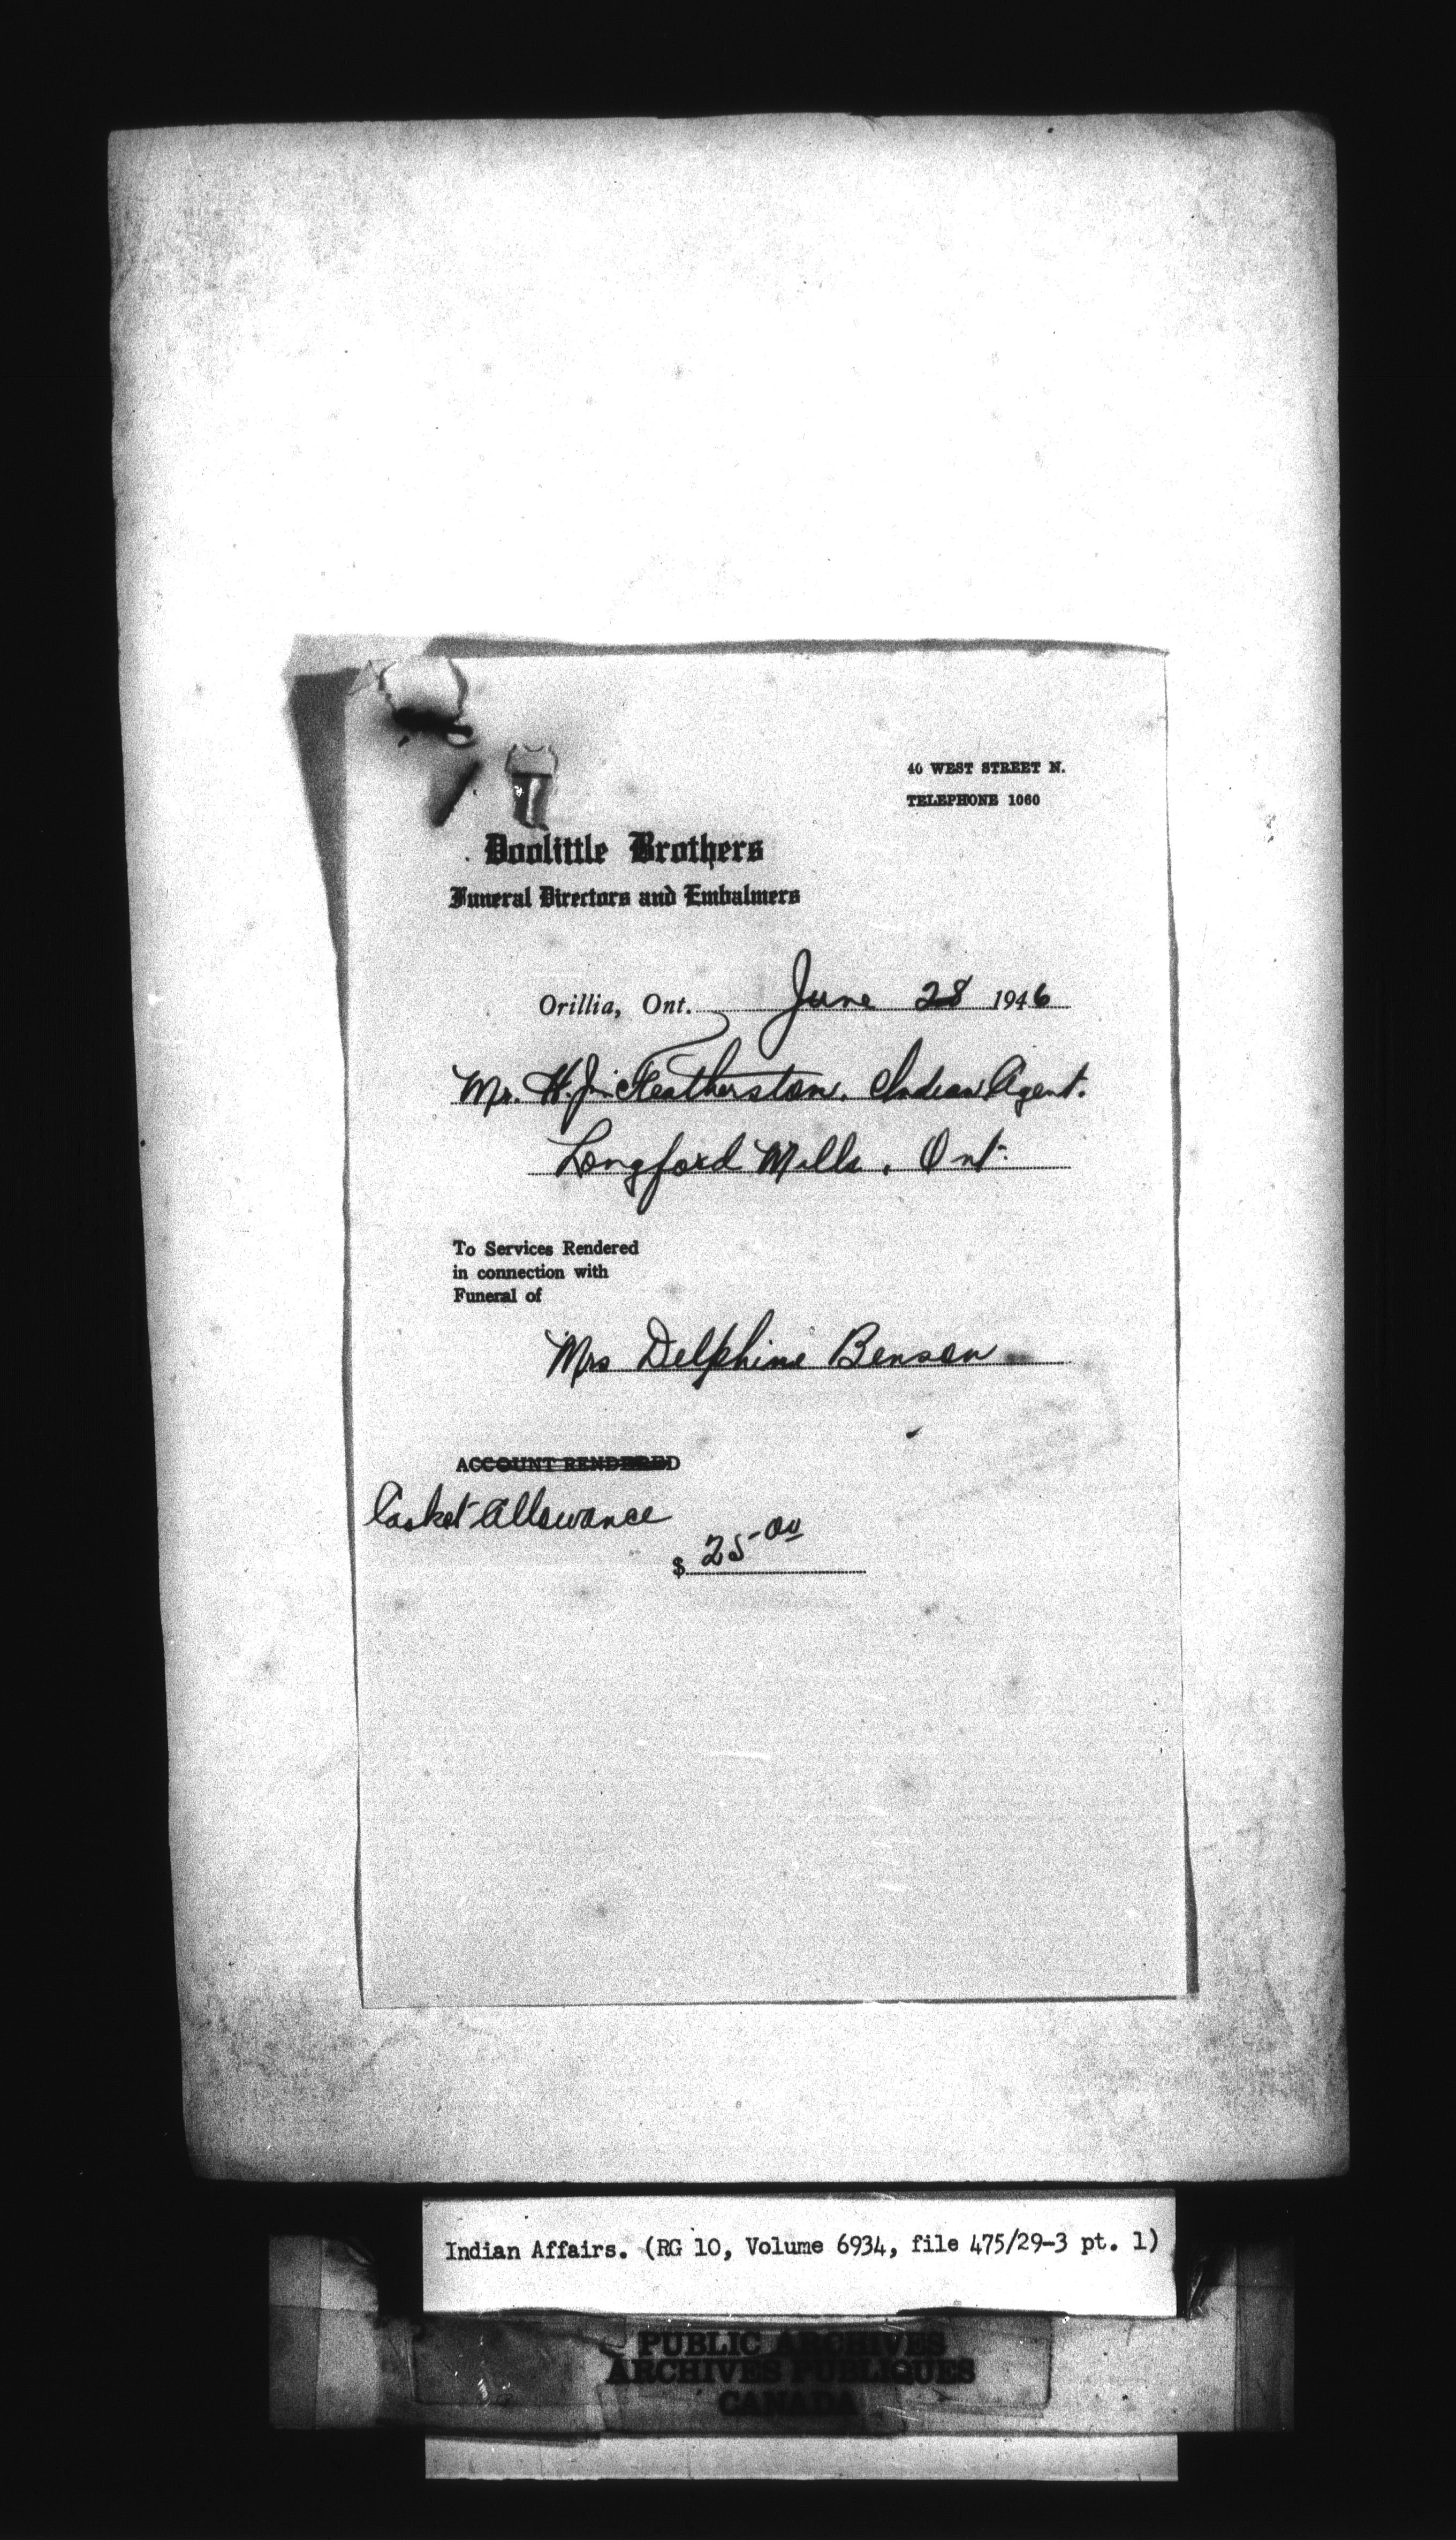 40 WEST STREET N.
TELEPHONE 1060
Doolittle Brothers
Funeral Directors and Embalmers
Orillia, Ont. June 28 1946
Mr. H. J. Featherston. Indian Agent.
Longford Mills. Ont.
To Services Rendered
in connection with
Funeral of
Mrs Delphine Benson
ACCOUNT RENDERED
Casket Allowance
$ 25-00
Indian Affairs. (RG 10, Volume 6934, file 475/29-3 pt. 1)
PUBLIC ARCHIVES
ARCHIVES PUBLIQUES
CANADA